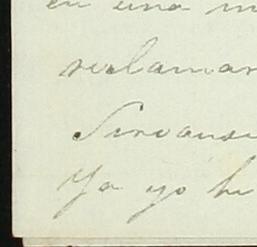 en una
reclamar
Sirvanse
Ya yo he